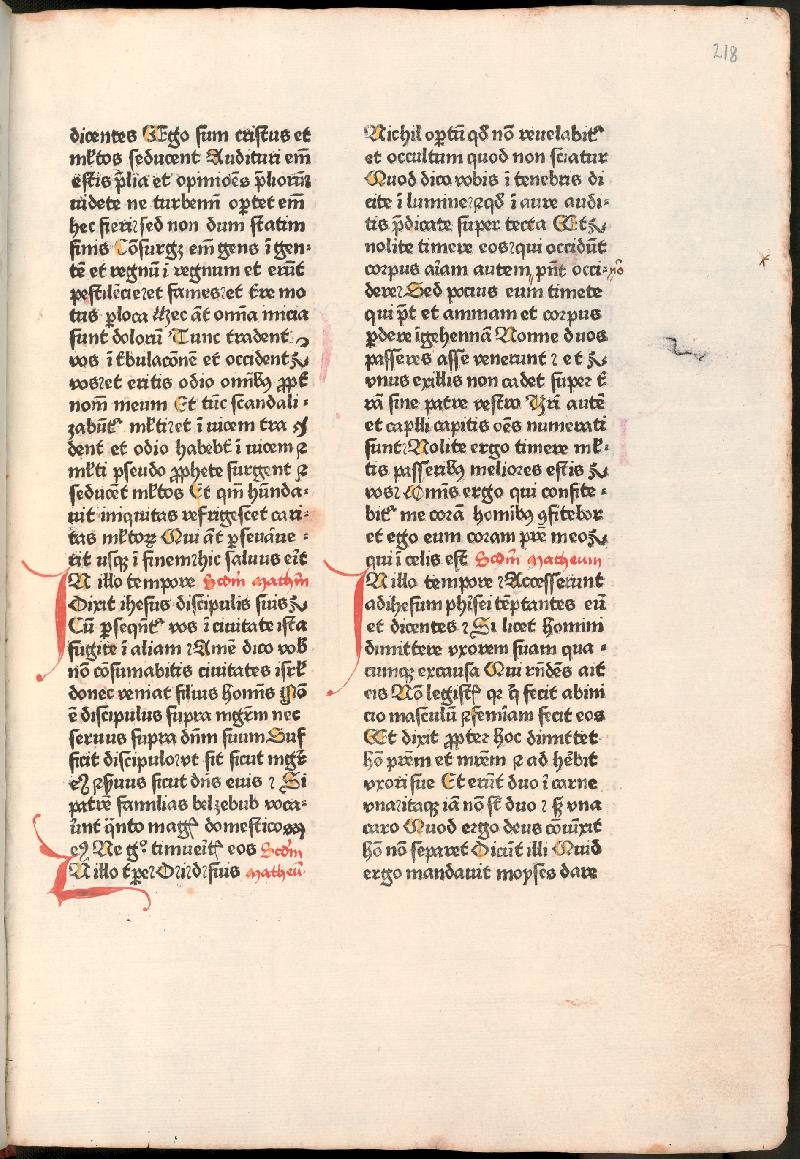 218
dicentes Ego sum cristus et
ml̄tos seducent Audituri em̄
estis p̄lia et opinioēs p̄liorū
uidete ne turbemī oꝑtet em̄
hec fieri sed non dum statim
finis Cōsurgꝫ em̄ gens ī gen⸗
tē et regnū ī regnum et erūt
pestilēcie et fames et t̄re mo
tus ꝑ loca Hec āt om̄ia inicia
sunt dolorū Tunc tradent
vos ī t̄bulacōnē et occident
vos et eritis odio om̄ibꝰ ꝓpt̄
nom̄ meum Et tūc scandali⸗
zabūt᷑ ml̄ti et ī uicem tra
dent et odio habebt̄ ī uicem ⁊
ml̄ti pseudo ꝓphete surgent ⁊
seducēt ml̄tos Et qm̄ hūnda⸗
uit iniquitas refrigescet cari⸗
tas ml̄torꝫ Qui āt ꝑseuaue⸗
rit usqꝫ ī finem hic saluus eīt
N illo tempore Scdm̄ Mathm̄
Dixit ihesus discipulis suis
Cū ꝑseqnt᷑ vos ī ciuitate ista
fugite ī aliam Amē dico vob̄
nō cōsumabitis ciuitates isrl̄
donec veniat filius homīs Nō
ē discipulus supra mgr̄m nec
seruus supra dn̄m suum Suf
ficit discipulo vt sit sicut mgr̄
eꝰ ⁊ s̄uus sicut dn̄s eius Si
patrē familias belzebub voca⸗
ūnt q̄nto magꝭ domestico
eꝰ Ne gͦ timueītꝭ eos Scdm̄
N illo t̄pe Dixit suis Matheū
Nichil oꝑtū qd̄ nō reuelabit᷑
et occultum quod non sciatur
Quod dico vobis ī tenebris di
cite ī lumine ⁊ qd̄ ī aure audi⸗
tis p̄dicate super tecta Et
nolite timere eos qui occidūt
corpus aīam autem pn̄t occi⸗ nō
dere Sed pocius eum timete
qui p̄t et animam et corpus
ꝑdere ī gehennā Nonne duos
passeres asse veneunt et
vnus ex illis non cadet super t̄
rā sine patre vestro Vr̄i autē
et capl̄li capitis oēs numerati
sunt Nolite ergo timere ml̄⸗
tis passeribꝰ meliores estis
vos Om̄is ergo qui confite⸗
bit᷑ me corā homibꝰ ꝯfitebor
et ego eum coram pr̄e meo
qui ī celis est Scdm̄ Matheum
N illo tempore Accesserunt
ad ihesum phīsei tēptantes eū
et dicentes Si licet homini
dimittere vxorem suam qua⸗
cumqꝫ ex causa Qui rn̄dēs ait
eis Nō legistꝭ qꝛ q̄ fecit ab ini
cio masculū ⁊ femīam fecit eos
Et dixit ꝓpter hoc dimittet
hō pr̄em et mr̄em ⁊ ad hēbit
vxori sue Et erūt duo ī carne
vna itaqꝫ iā nō st̄ duo sꝫ vna
caro Quod ergo deus cōiūxit
hō nō separet Dicūt illi Quid
ergo mandauit moyses dare